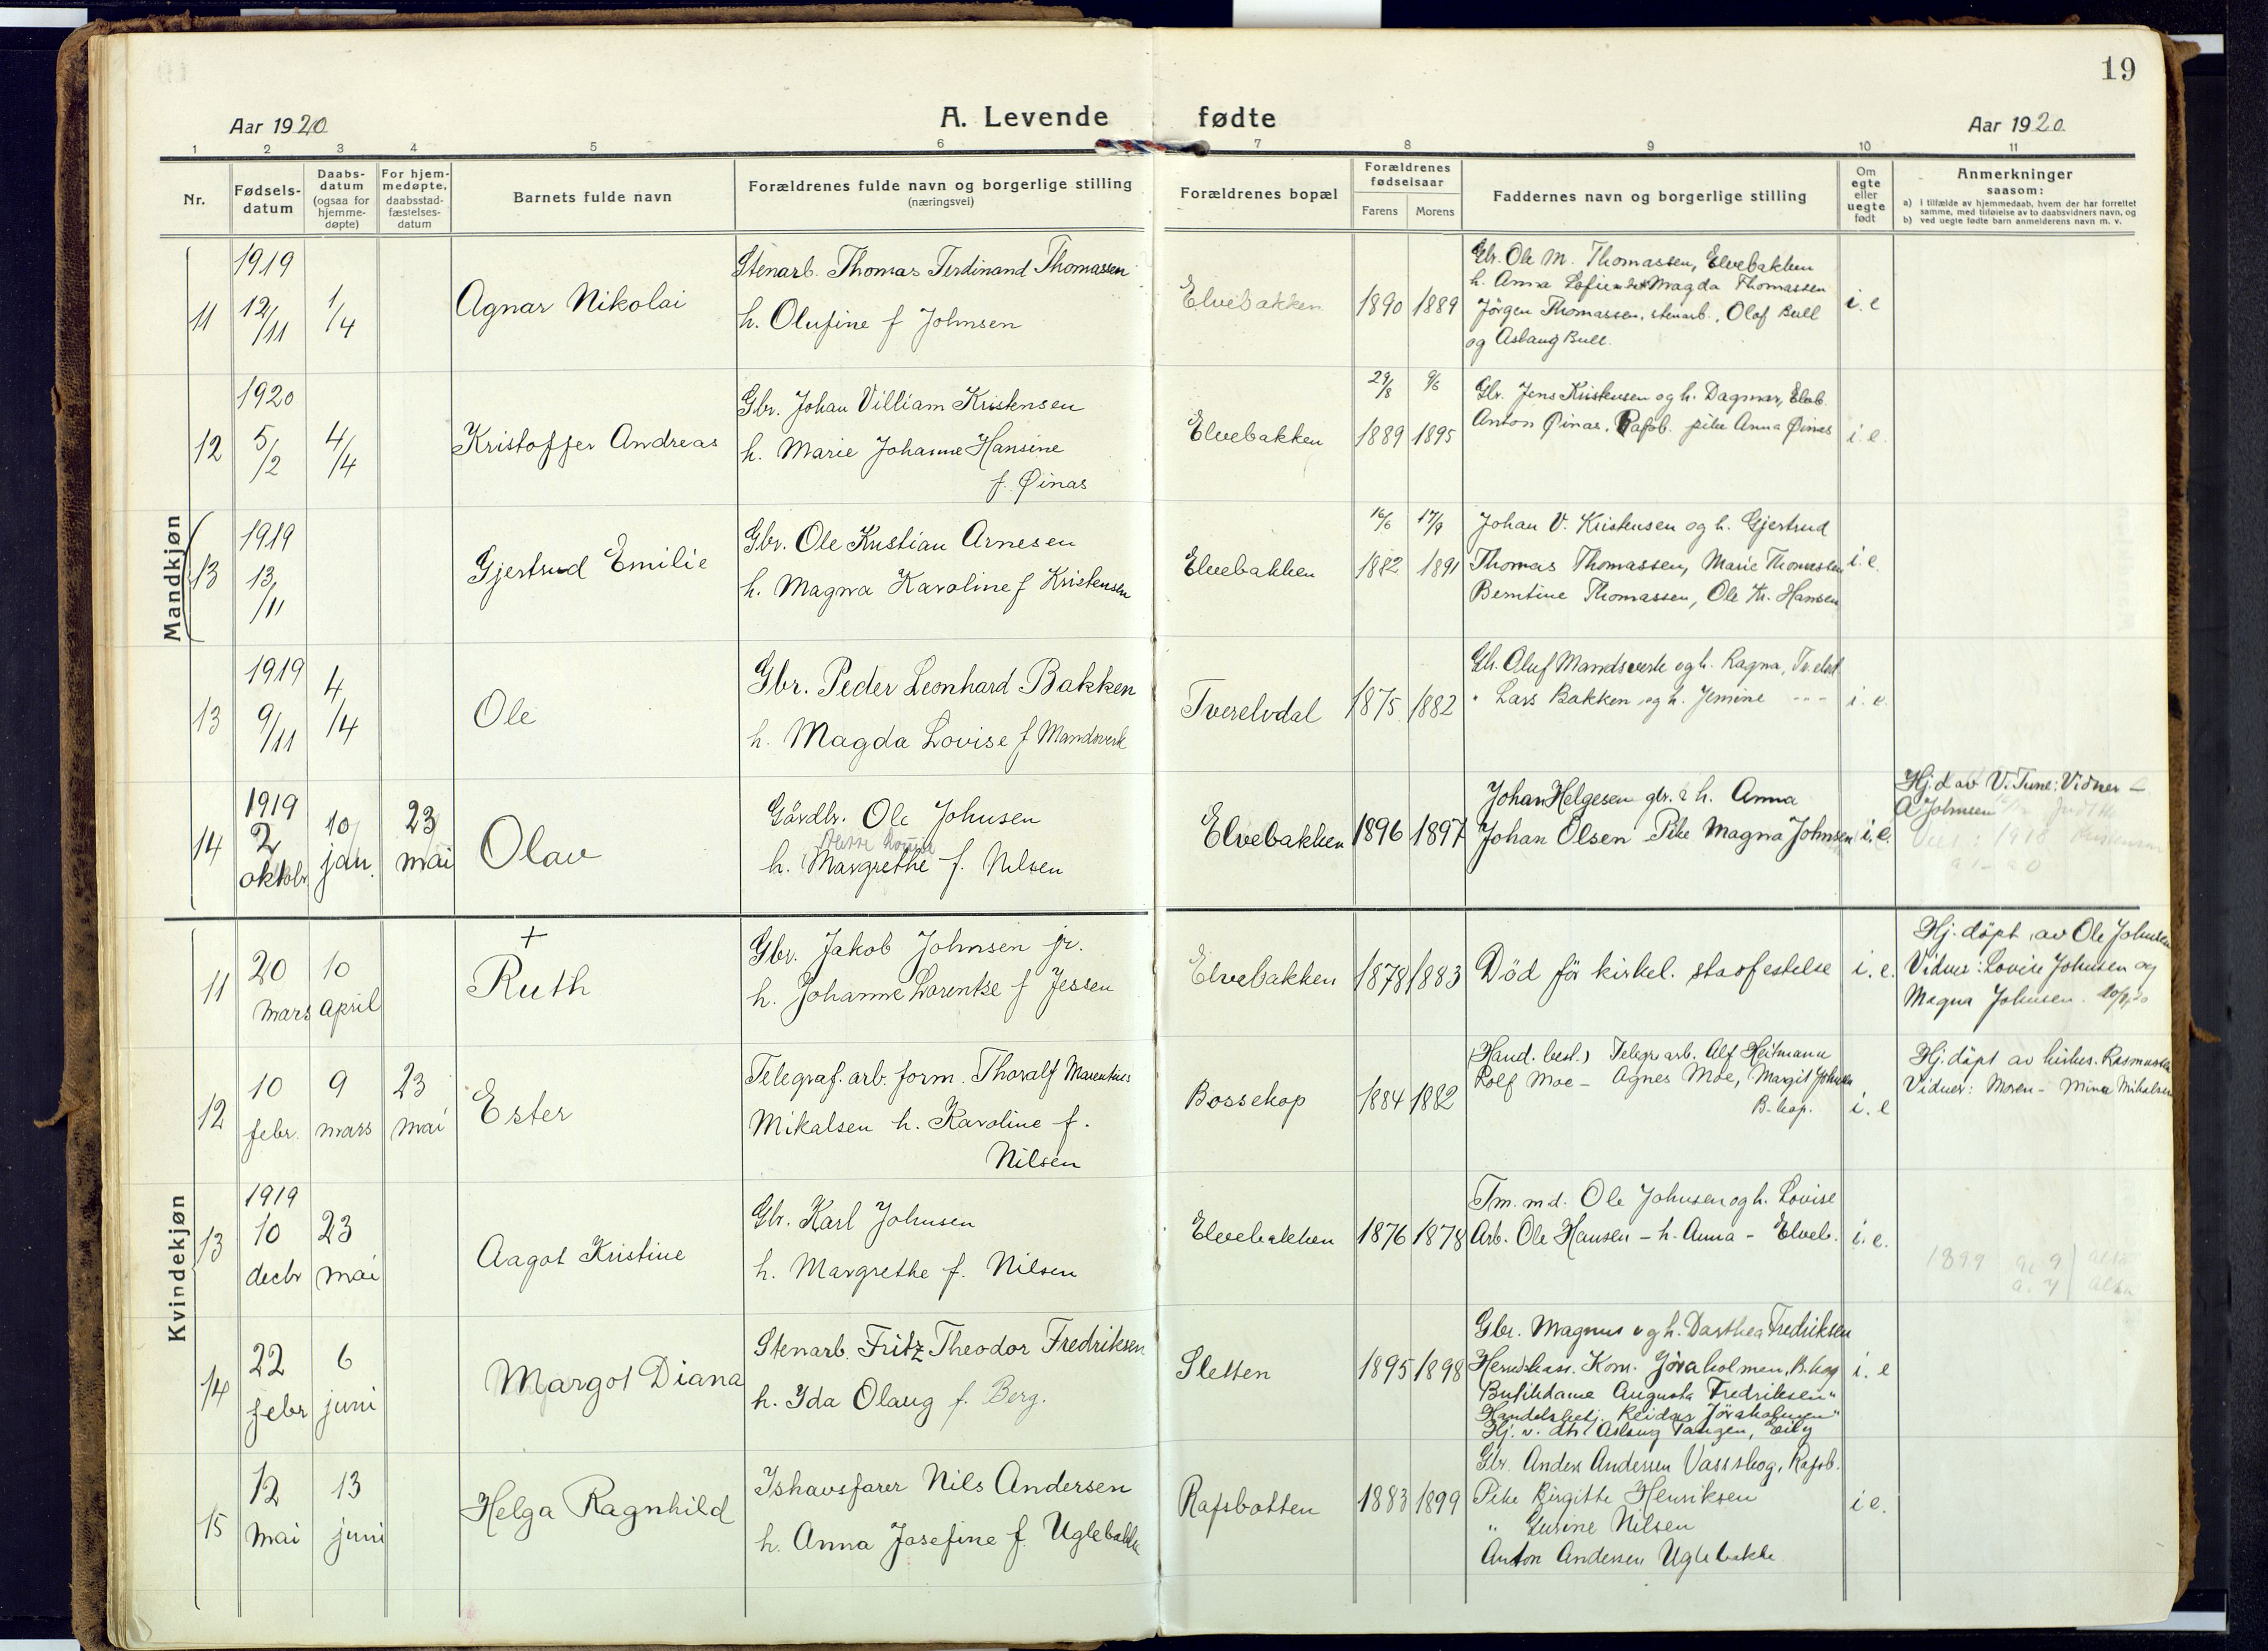 19
Aar 1920
A. Levende fødte
Aar 1920
1 2 3 4 5 6 7 8 9 10 11
Nr.
Fødsels-
datum
Daabs-
datum
(ogsaa for
hjemme-
døpte)
For hjem-
medøpte,
daabsstad-
fæstelses-
datum
Barnets fulde navn
Forældrenes fulde navn og borgerlige stilling
(næringsvei)
Forældrenes bopæl
Forældrenes
fødselsaar
Farens Morens
Faddernes navn og borgerlige stilling
Om
egte
eller
uegte
født
Anmerkninger
saasom:
a) i tilfælde av hjemmedaab, hvem der har forrettet
samme, med tilføielse av to daabsvidners navn, og
b) ved uegte fødte barn anmelderens navn m. v.
Mandkjøn
11
1919
12/11
1/4
Agnar Nikolai
Stenarb. Thomas Ferdinand Thomassen
h. Olufine f Johnsen
Elvebakken
1890 1889
Gbr. Ole M. Thomassen, Elvebakken
h. Anna Magda Thomassen
Jörgen Thomassen, stenarb., Olaf Bull
og Aslaug Bull.
i. e
12
1920
5/2
4/4
Kristoffer Andreas
Gbr. Johan Villiam Kristensen
h. Marie Johanne Hansine
f. Øinas
Elvebakken
29/8 9/6
1889 1895
Gbr. Jens Kristensen og h. Dagmar, Elvb.
Anton Øinas, Rafsb. pike Anna Øinas
i. e.
13
1919
13/11
Gjertrud Emilie
Gbr. Ole Kristian Arnesen
h. Magna Karoline f Kristensen
Elvebakken
16/6 17/9
1882 1891
Johan V. Kristensen og h. Gjertrud
Thomas Thomassen, Marie Thomassen
Berntine Thomassen, Ole Kr. Hansen
i. e.
13
1919
9/11
4/4
Ole
Gbr. Peder Leonhard Bakken
h. Magda Lovise f Mandsverk
Tverelvdal
1875 1882
Gb. Oluf Mandsverk og h. Ragna, Tv.elvd.
" Lars Bakken og h. Jemine - - -
i. e.
14
1919
2
oktobr
10
jan.
23
mai
Olav
Gårdbr. Ole Johnsen
h. Margrethe f. Nilsen
Elvebakken
1896 1897
Johan Helgesen gbr. & h. Anna
Johan Olsen Pike Magna Johnsen
i. e.
Hj.d av V. Tune: Vidner -
A Johnsen
Kvindekjøn
11
20
mars
10
april
+
Ruth
Gbr. Jakob Johnsen jr.
h. Johanne Lorentse f Jessen
Elvebakken
1878 1883
Död för kirkel. stadfestelse
i. e.
Hj. döpt av Ole Johnsen
Vidner: Lovise Johnsen og
Magna Johnsen.
12
10
febr.
9
mars
23
mai
Ester
Telegraf. arb. form. Thoralf Marentius
Mikalsen h. Karoline f.
Nilsen
Bossekop
1884 1882
(Hand. best.) Telegr. arb. Alf Heitmann
Rolf Moe - Agnes Moe, Margit Johnsen
B-kop.
i. e
Hj. döpt av kirkes. Rasmussen
Vidner: Moren - Mina Mikalsen
13
1919
10
decbr
23
mai
Aagot Kristine
Gbr. Karl Johnsen
h. Margrethe f. Nilsen
Elvebakken
1876 1878
Tm. md. Ole Johnsen og h. Lovise
Arb. Ole Hansen - h. Anna - Elveb.
i. e.
1899
14
22
febr
6
juni
Margot Diana
Stenarb. Fritz Theodor Fredriksen
h. Ida Olaug f. Berg.
Sletten
1895 1898
Gbr. Magnus og h. Dorthea Fredriksen
Herredskass. Kon. Jöraholmen, B.kop
Butikdame Augusta Fredriksen "
Handelsbetj. Reidar Jöraholmen "
Hj. v. dtr. Aslaug Tangen,
i. e
15
12
mai
13
juni
Helga Ragnhild
Ishavsfarer Nils Andersen
h. Anna Josefine f. Uglebakke
Rafsbotten
1883 1899
Gbr. Anders Andersen Vasskog, Rafsb.
Pike Birgitte Henriksen
" Gusine Nilsen
Anton Andersen Uglebakke
i e.